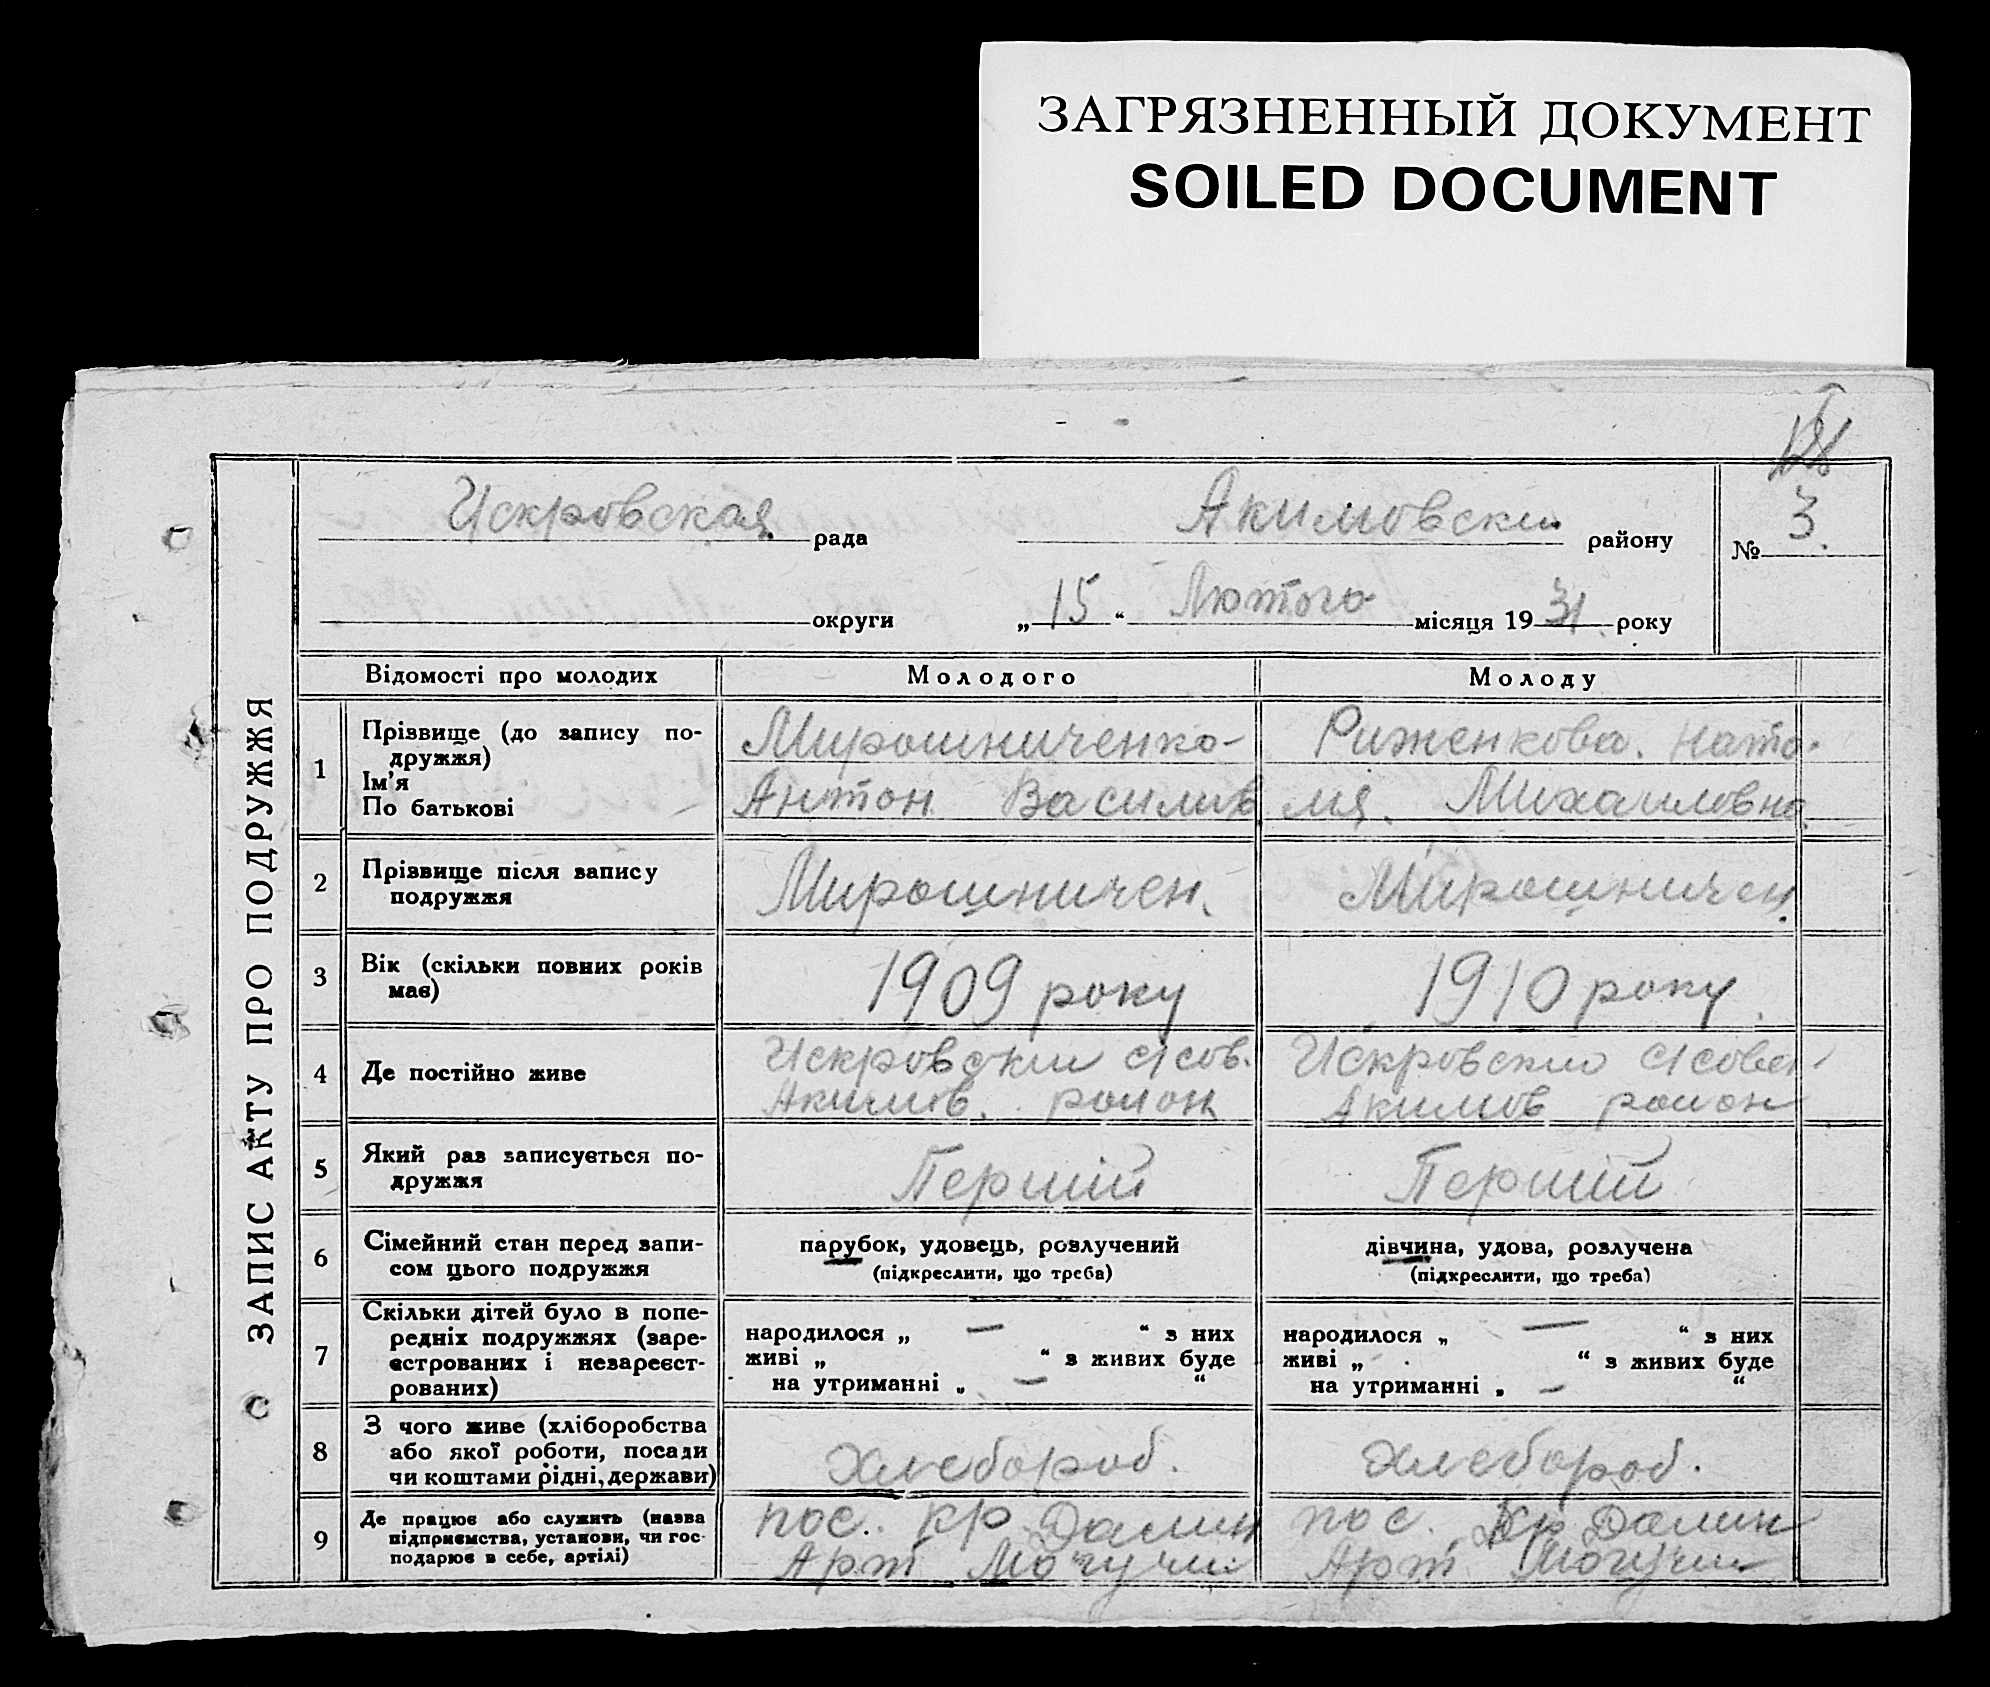 ЗАГРЯЗНЕННЫЙ ДОКУМЕНТ
SOILED DOCUMENT
ЗАПИС АКТУ ПРО ПОДРУЖЖЯ
Искровская рада Акимовски району № 3.
округи „15“ Лютого місяця 1931. року
Відомості про молодих Молодого Молоду
1 Прізвище (до запису по-
дружжя)
Ім'я
По батькові
Мирошниченко-
Антон Василив
Риженкова. Ната-
лия. Михаиловна
2 Прізвище після запису
подружжя
Мирошничен.
Мирошничен.
3 Вік (скільки повних років
має)
1909 року
1910 року
4 Де постійно живе
Искровски с/сов.
Акимов. раион
Искровски с/совет
Акимов раион
5 Який раз записується по-
дружжя
Перший
Перший
6 Сімейний стан перед запи-
сом цього подружжя
парубок, удовець, розлучений
(підкреслити, що треба)
дівчина, удова, розлучена
(підкреслити, що треба)
7 Скільки дітей було в попе-
редніх подружжях (заре-
єстрованих і незареєст-
рованих)
народилося „ — “ з них
живі „ “ з живих буде
на утриманні „ — “
народилося „ — “ з них
живі „ “ з живих буде
на утриманні „ — “
8 З чого живе (хліборобства
або якої роботи, посади
чи коштами рідні, держави)
Хлебороб.
Хлебороб.
9 Де працює або служить (назва
підприємства, установи, чи гос-
подарює в себе, артілі)
пос. Кр Далин
Арт Могучи
пос. Кр Далин
Арт Могучи